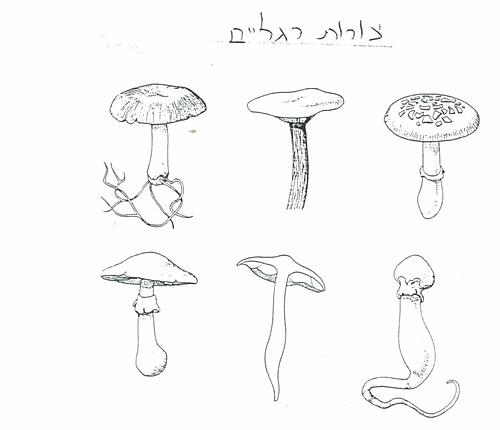 צורות רגליים